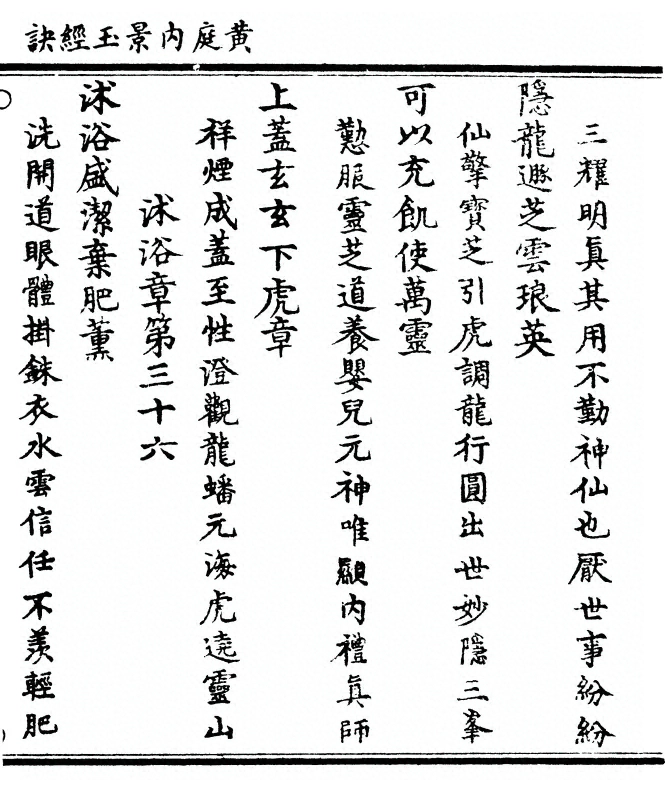 黃庭內景玉經訣
三耀明眞其用不勤神仙也厭世事紛紛
隱龍遯芝雲琅英
仙擎寶芝引虎調龍行圓出世妙隱三峯
可以充飢使萬靈
懃服靈芝道養嬰兒元神唯顯內禮眞師
上蓋玄玄下虎章
祥煙成蓋至性澄觀龍蟠元海虎遶靈山
沐浴章第三十六
沐浴盛潔棄肥薰
洗開道眼體掛銖衣水雲信任不羨輕肥